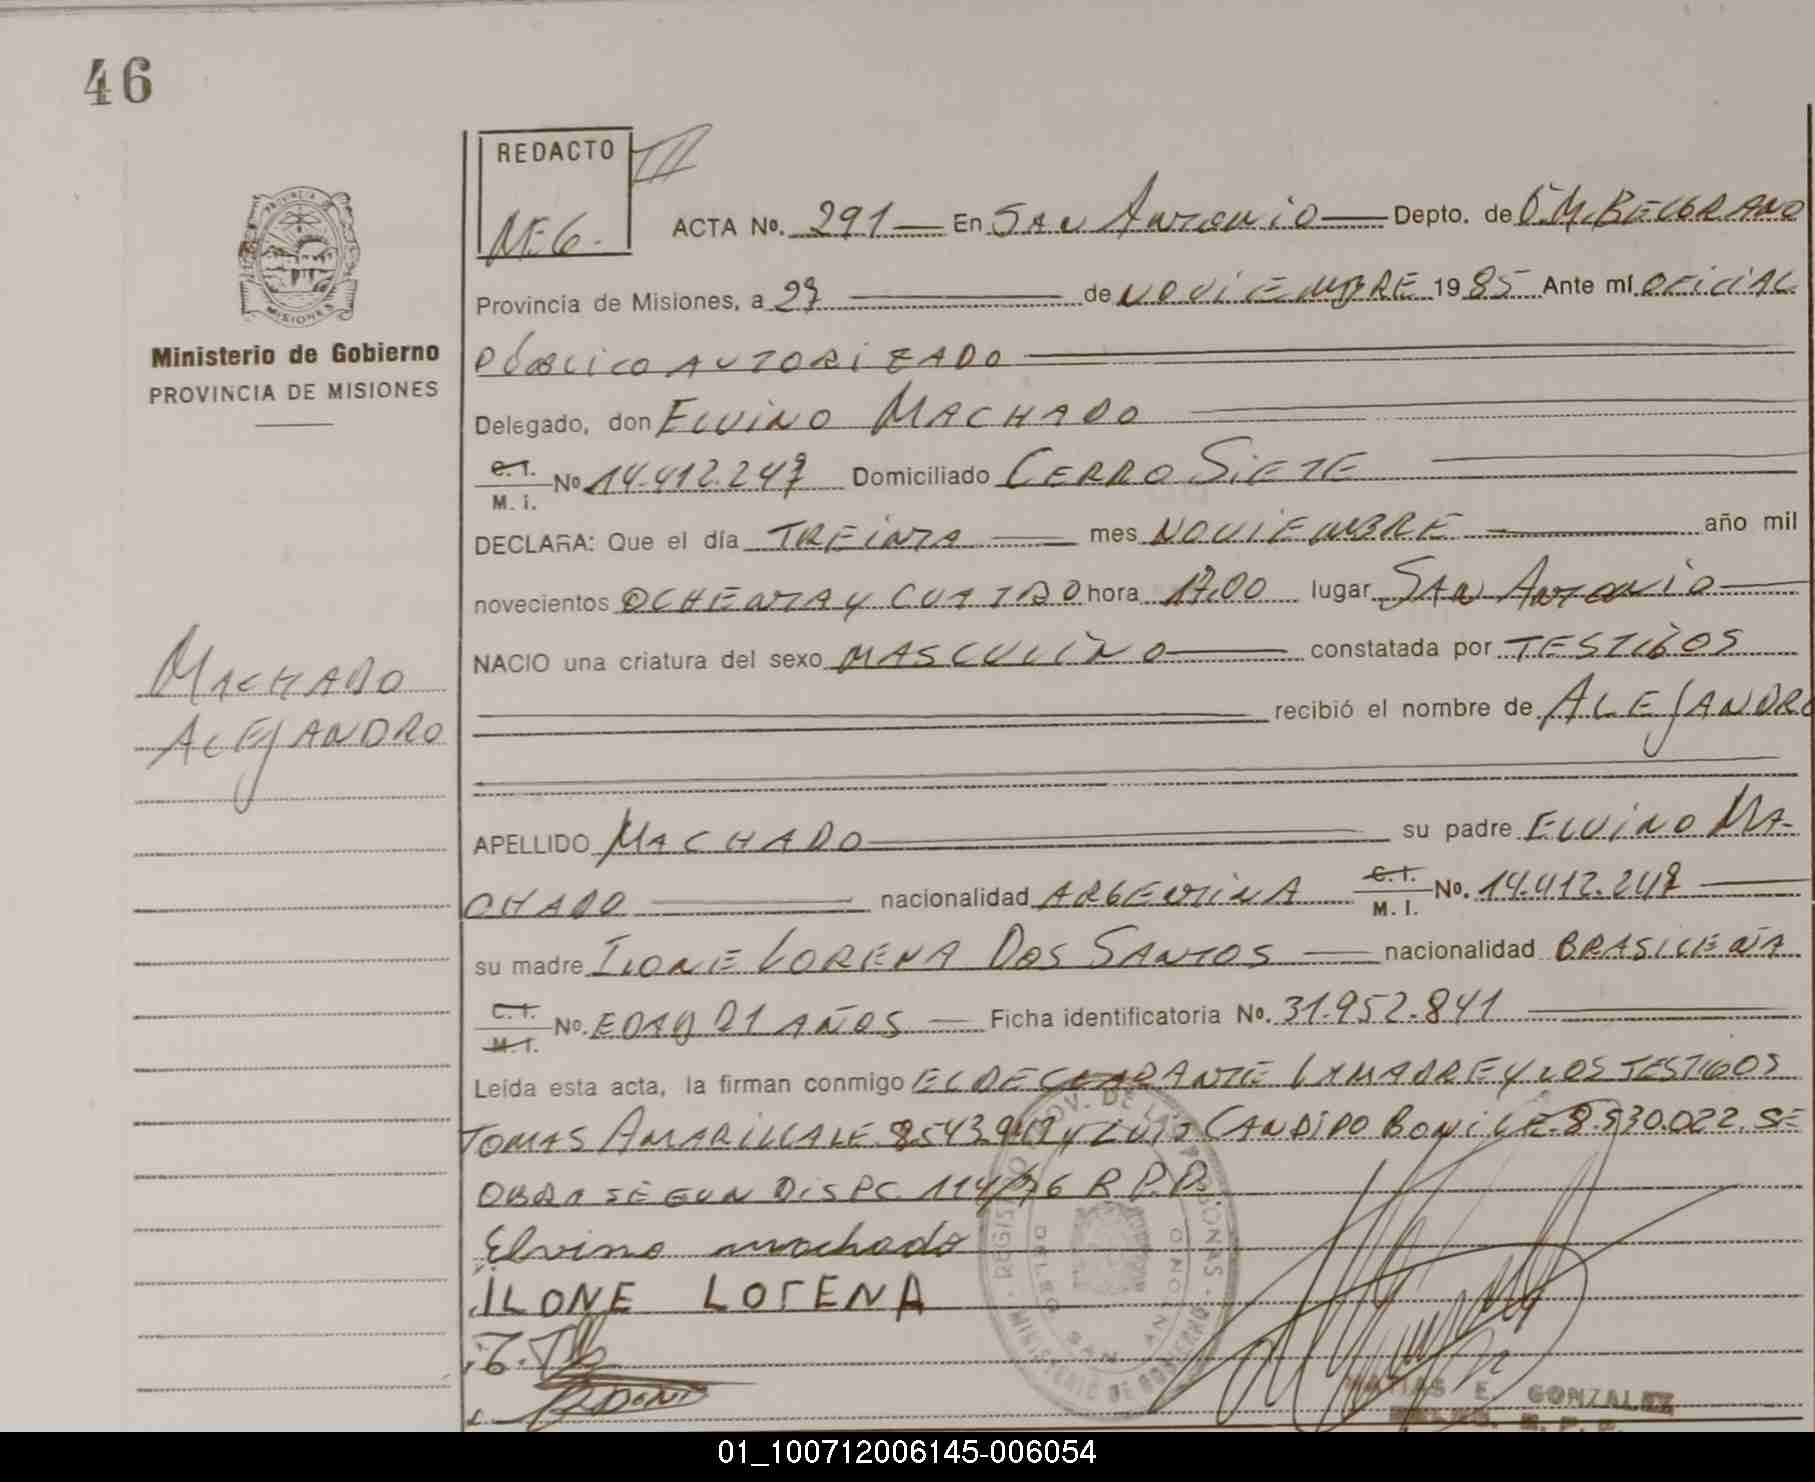 46
REDACTO
M.E.G.
ACTA No. 291 En SAN ANTONIO Depto. de G.M. BELGRANO
Provincia de Misiones, a 27 de NOVIEMBRE 1985 Ante mí OFICIAL
PÚBLICO AUTORIZADO
Delegado, don ELVINO MACHADO
C.I. M. I. No 14.412.247 Domiciliado CERRO SIETE
DECLARA: Que el día TREINTA mes NOVIEMBRE año mil
novecientos OCHENTA Y CUATRO hora 17,00 lugar SAN ANTONIO
NACIO una criatura del sexo MASCULINO constatada por TESTIGOS
recibió el nombre de ALEJANDRO
APELLIDO MACHADO su padre ELVINO MA-
CHADO nacionalidad ARGENTINA C.I. M. I. No. 14.412.247
su madre ILONE LORENA DOS SANTOS nacionalidad BRASILEÑA
C.I. M.I. No. EDAD 21 AÑOS Ficha identificatoria No. 31.952.841
Leída esta acta, la firman conmigo EL DECLARANTE LA MADRE Y LOS TESTIGOS
TOMAS AMARILLA LE Y LUIS CANDIDO LE 8.830.022. SE
OBRA SEGUN DISPC. R.P.P.
Elvino machado
ILONE LORENA
MATIAS E. GONZALEZ
PROVINCIA DE MISIONES
Ministerio de Gobierno
PROVINCIA DE MISIONES
MACHADO
ALEJANDRO
REGISTRO PROV. DE LAS PERSONAS - MINISTERIO DE GOBIERNO
SAN ANTONIO
01_100712006145-006054